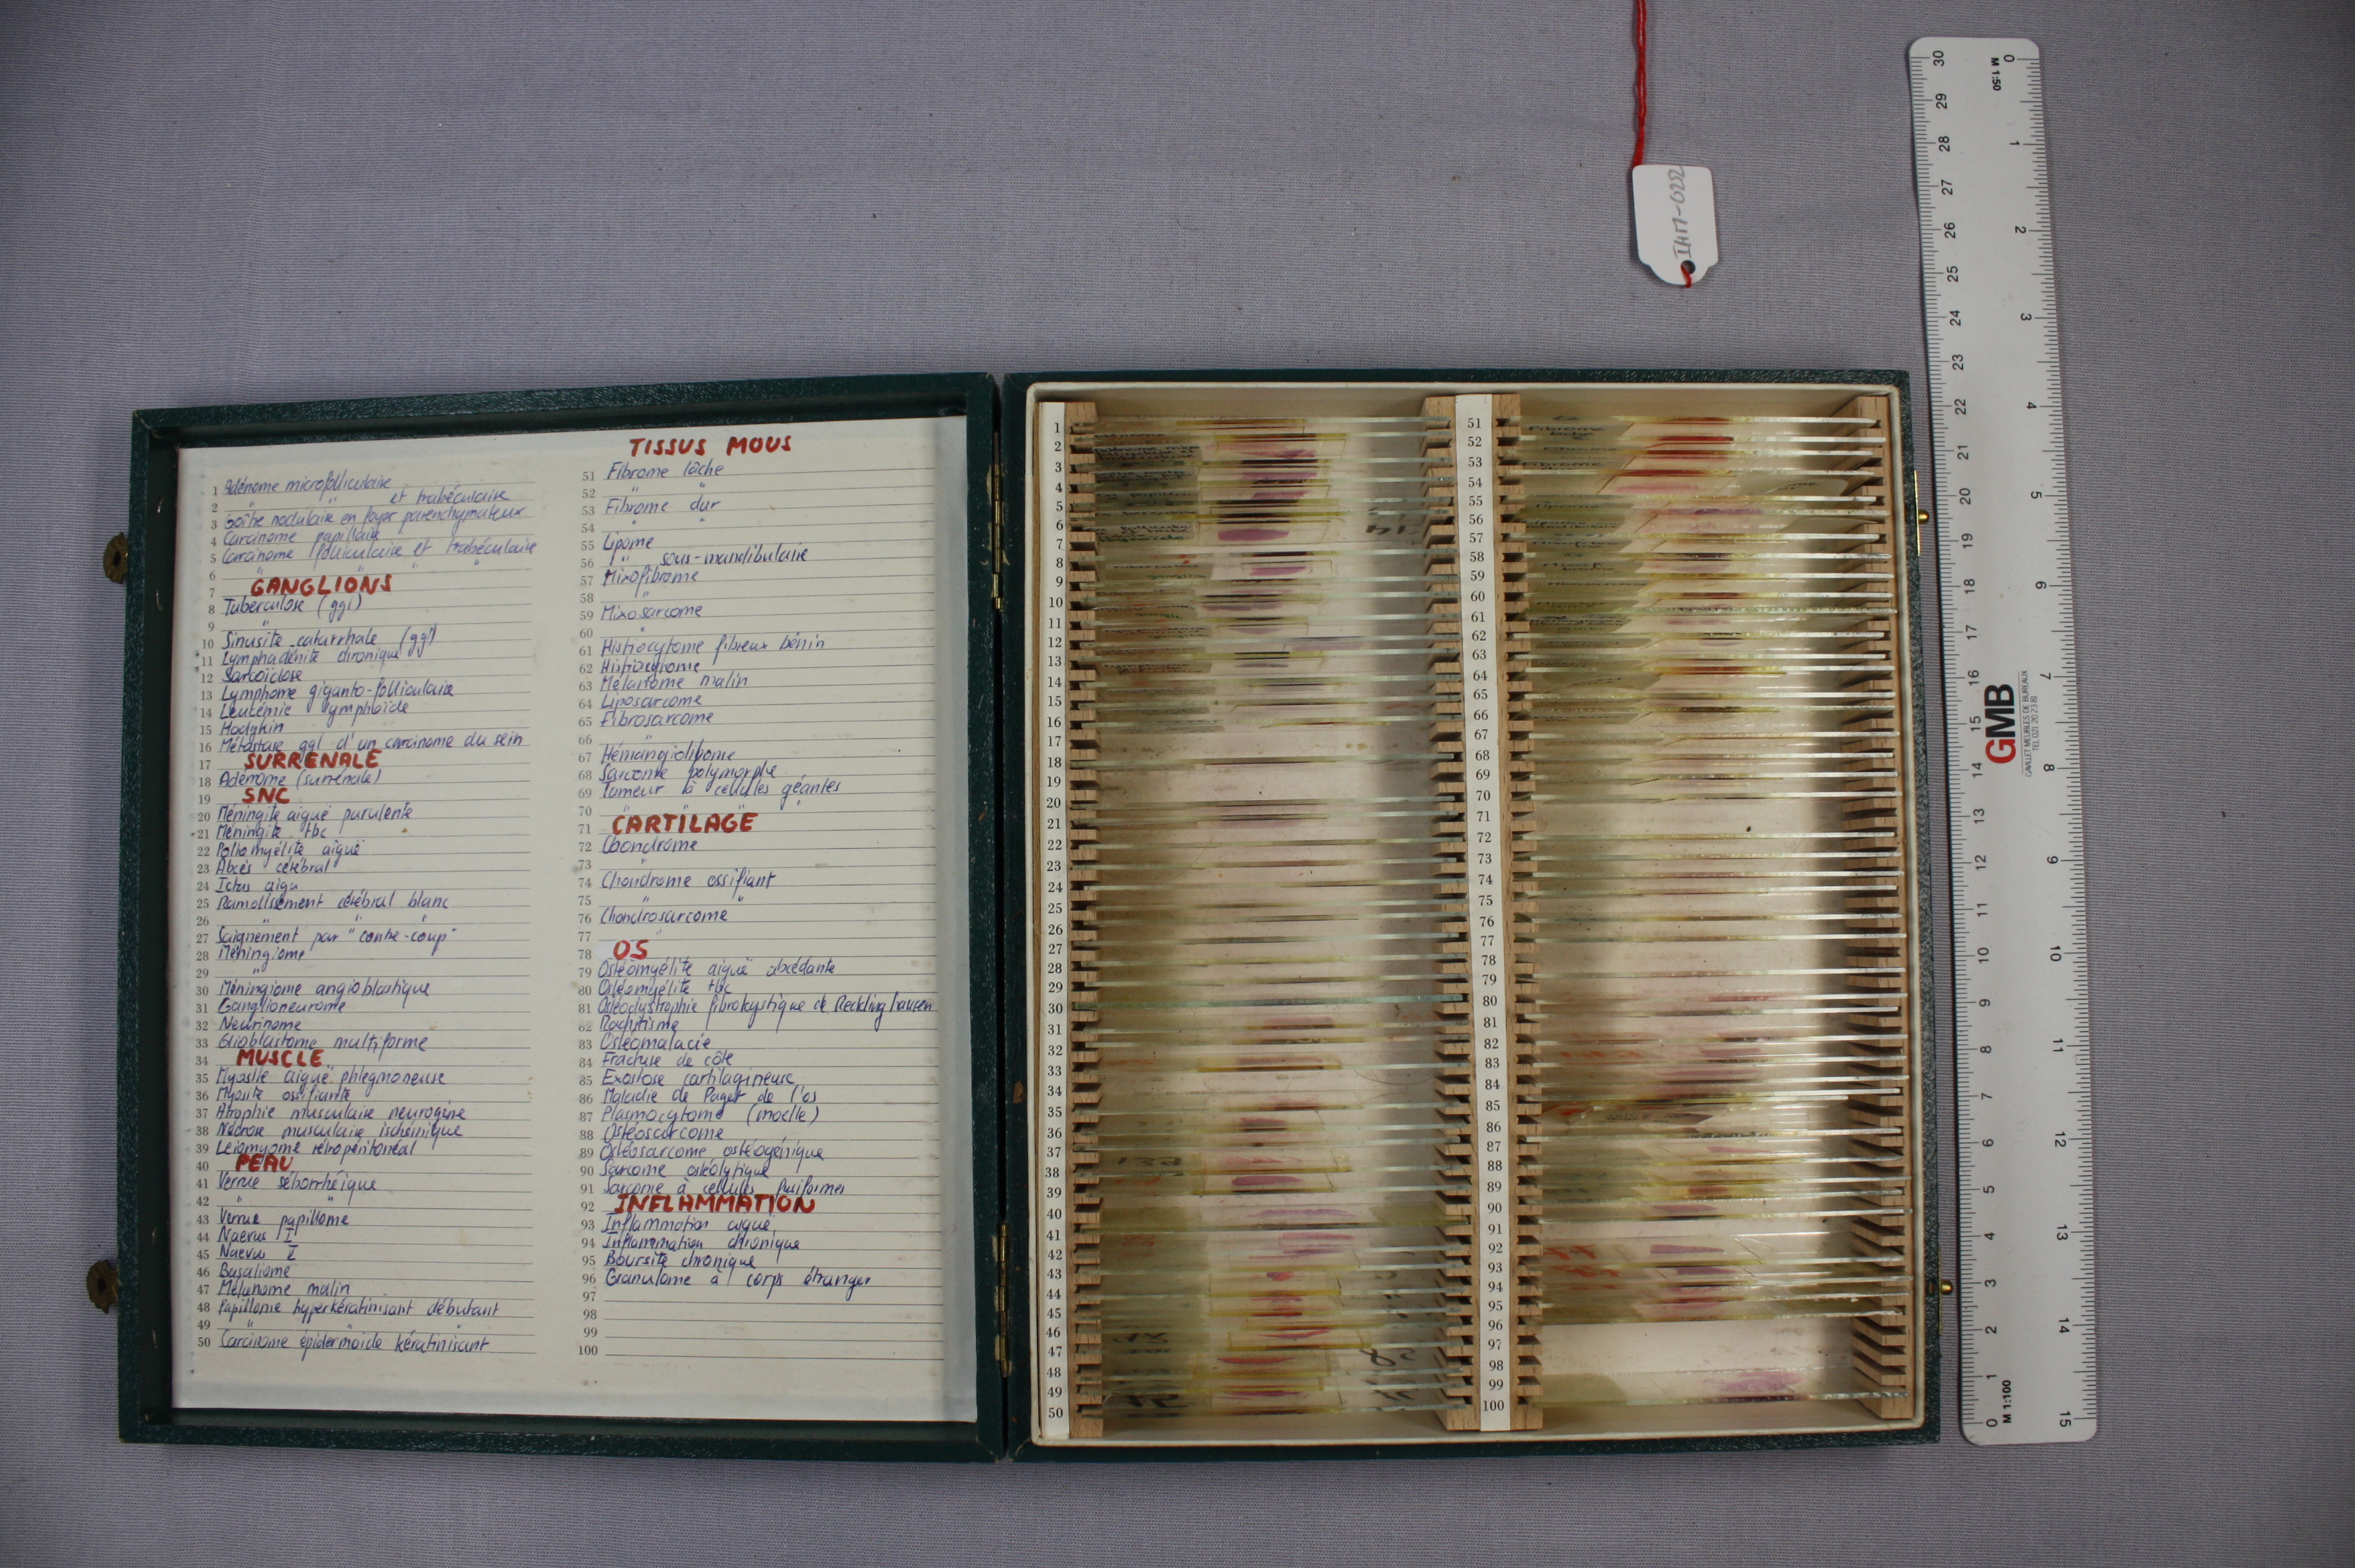 1 Adénome microfolliculaire
2 " " et trabéculaire
3 Goître nodulaire en foyer parenchymateux
4 Carcinome papillaire
5 Carcinome folliculaire et trabéculaire
6 " " " "
7 GANGLIONS
8 Tuberculose (ggl)
9 "
10 Sinusite catarrhale (ggl)
11 Lymphadénite chronique
12 Sarcoïdose
13 Lymphome giganto-folliculaire
14 Leucémie lymphoïde
15 Hodgkin
16 Métastase ggl d'un carcinome du sein
17 SURRENALE
18 Adénome (surrénale)
19 SNC
20 Méningite aiguë purulente
21 Méningite tbc
22 Poliomyélite aiguë
23 Abcès cérébral
24 Ictus aigu
25 Ramollissement cérébral blanc
26 " " "
27 Saignement par "contre-coup"
28 Méningiome
29 "
30 Méningiome angioblastique
31 Ganglioneurome
32 Neurinome
33 Glioblastome multiforme
34 MUSCLE
35 Myosite aiguë phlegmoneuse
36 Myosite ossifiante
37 Atrophie musculaire neurogène
38 Nécrose musculaire ischémique
39 Leiomyome rétropéritonéal
40 PEAU
41 Verrue séborrhéique
42 " "
43 Verrue papillome
44 Naevus I
45 Naevus II
46 Basaliome
47 Mélanome malin
48 Papillome hyperkératinisant débutant
49 " " "
50 Carcinome épidermoïde kératinisant
TISSUS MOUS
51 Fibrome lâche
52 " "
53 Fibrome dur
54 " "
55 Lipome
56 " sous-mandibulaire
57 Mixofibrome
58 "
59 Mixosarcome
60 "
61 Histiocytome fibreux bénin
62 Histiocytome
63 Mélanome malin
64 Liposarcome
65 Fibrosarcome
66 "
67 Hémangiolipome
68 Sarcome polymorphe
69 Tumeur à cellules géantes
70 " " " "
71 CARTILAGE
72 Chondrome
73 "
74 Chondrome ossifiant
75 " "
76 Chondrosarcome
77 "
78 OS
79 Ostéomyélite aiguë abcédante
80 Ostéomyélite tbc
81 Ostéodystrophie fibrokystique de Recklinghausen
82 Rachitisme
83 Ostéomalacie
84 Fracture de côte
85 Exostose cartilagineuse
86 Maladie de Paget de l'os
87 Plasmocytome (moelle)
88 Ostéosarcome
89 Ostéosarcome ostéogénique
90 Sarcome ostéolytique
91 Sarcome à cellules fusiformes
92 INFLAMMATION
93 Inflammation aiguë
94 Inflammation chronique
95 Boursite chronique
96 Granulome à corps étranger
97
98
99
100
1
2
3
4
5
6
7
8
9
10
11
12
13
14
15
16
17
18
19
20
21
22
23
24
25
26
27
28
29
30
31
32
33
34
35
36
37
38
39
40
41
42
43
44
45
46
47
48
49
50
51
52
53
54
55
56
57
58
59
60
61
62
63
64
65
66
67
68
69
70
71
72
73
74
75
76
77
78
79
80
81
82
83
84
85
86
87
88
89
90
91
92
93
94
95
96
97
98
99
100
IHM-0222
M 1:50
0 1 2 3 4 5 6 7 8 9 10 11 12 13 14 15
GMB
GAVILLET MEUBLES DE BUREAUX
TEL 021 20 23 81
0 1 2 3 4 5 6 7 8 9 10 11 12 13 14 15 16 17 18 19 20 21 22 23 24 25 26 27 28 29 30
M 1:100